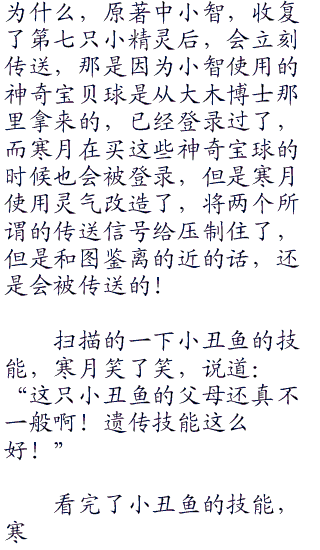 为什么，原著中小智，收复
了第七只小精灵后，会立刻
传送，那是因为小智使用的
神奇宝贝球是从大木博士那
里拿来的，已经登录过了，
而寒月在买这些神奇宝球的
时候也会被登录，但是寒月
使用灵气改造了，将两个所
谓的传送信号给压制住了，
但是和图鉴离的近的话，还
是会被传送的！
扫描的一下小丑鱼的技
能，寒月笑了笑，说道：
“这只小丑鱼的父母还真不
一般啊！遗传技能这么
好！”
看完了小丑鱼的技能，
寒